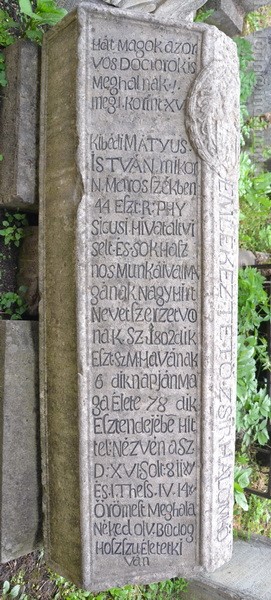 Hát Magok az or
vos Doctorok is
Meghalnak
meg I. Korint. XV.
Kibédi MáTYUS
ISTVÁN mikor
N. Maros székben
44 Eszt: R: PHY
sicusi Hivatalt vi
selt És sok Hasz
nos Munkáival Ma
gának Nagy Hírt
Nevet szerzet vo
na K. Sz: 1802dik
Eszt: Sz.M.Havának
6 dik napján ma
ga Élete 78 dik
Esztendejébe Hit
tel Nézvén a Sz
D: XVI Solt: 8
És I. Thess. IV. 14
Örömest Meghala
Néked olv: Bódog
Hosszu Életet ki
ván
EMLÉKEZTETŐ ZSIDHALOM